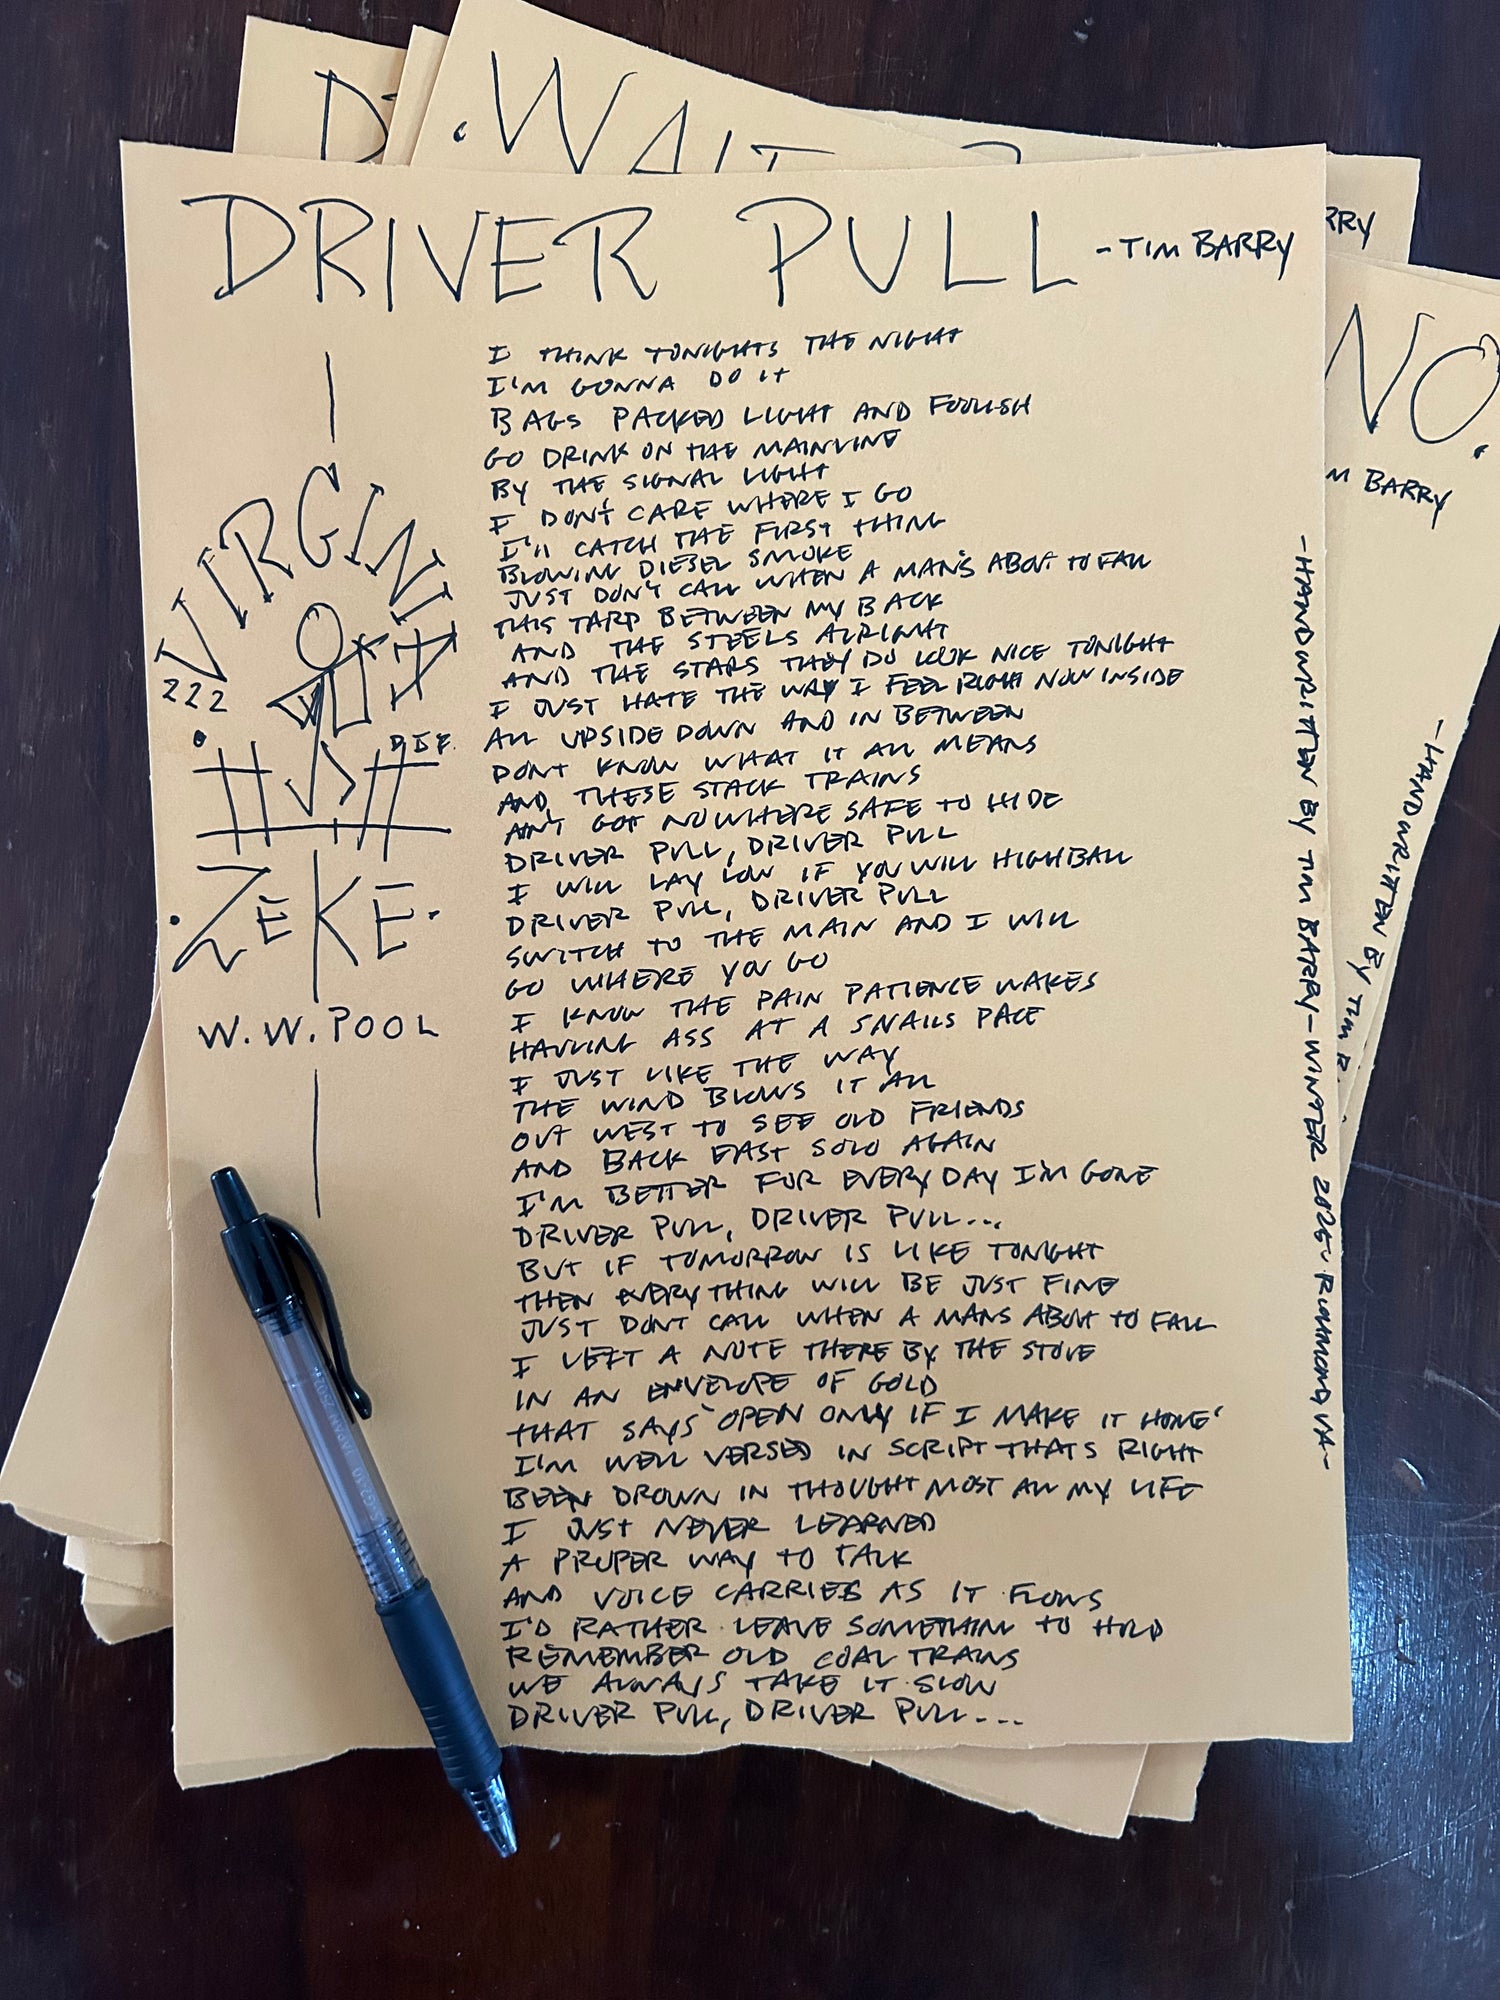 DRIVER PULL -TIM BARRY
I THINK TONIGHTS THE NIGHT
I'M GONNA DO IT
BAGS PACKED LIGHT AND FOOLISH
GO DRINK ON THE MAINLINE
BY THE SIGNAL LIGHT
I DON'T CARE WHERE I GO
I'll CATCH THE FIRST THING
BLOWING DIESEL SMOKE
JUST DON'T CALL WHEN A MAN'S ABOUT TO FALL
THIS TARP BETWEEN MY BACK
AND THE STEELS ALRIGHT
AND THE STARS THEY DO LOOK NICE TONIGHT
I JUST HATE THE WAY I FEEL RIGHT NOW INSIDE
ALL UPSIDE DOWN AND IN BETWEEN
DONT KNOW WHAT IT ALL MEANS
AND THESE STACK TRAINS
AIN'T GOT NOWHERE SAFE TO HIDE
DRIVER PULL, DRIVER PULL
I WILL LAY LOW IF YOU WILL HIGHBALL
DRIVER PULL, DRIVER PULL
SWITCH TO THE MAIN AND I WILL
GO WHERE YOU GO
I KNOW THE PAIN PATIENCE MAKES
HAULING ASS AT A SNAILS PACE
I JUST LIKE THE WAY
THE WIND BLOWS IT ALL
OUT WEST TO SEE OLD FRIENDS
AND BACK EAST SOLO AGAIN
I'M BETTER FOR EVERY DAY I'M GONE
DRIVER PULL, DRIVER PULL...
BUT IF TOMORROW IS LIKE TONIGHT
THEN EVERYTHING WILL BE JUST FINE
JUST DONT CALL WHEN A MANS ABOUT TO FALL
I LEFT A NOTE THERE BY THE STOVE
IN AN ENVELOPE OF GOLD
THAT SAYS "OPEN ONLY IF I MAKE IT HOME"
I'M WELL VERSED IN SCRIPT THATS RIGHT
BEEN DROWN IN THOUGHT MOST ALL MY LIFE
I JUST NEVER LEARNED
A PROPER WAY TO TALK
AND VOICE CARRIES AS IT FLOWS
I'D RATHER LEAVE SOMETHING TO HOLD
REMEMBER OLD COAL TRAINS
WE ALWAYS TAKE IT SLOW
DRIVER PULL, DRIVER PULL...
VIRGINIA
222
ZEKE
W.W. POOL
-HANDWRITTEN BY TIM BARRY-WINTER 2025- RICHMOND VA-
WAIT
RRY
NO.
M BARRY
-HANDWRITTEN BY TIM B